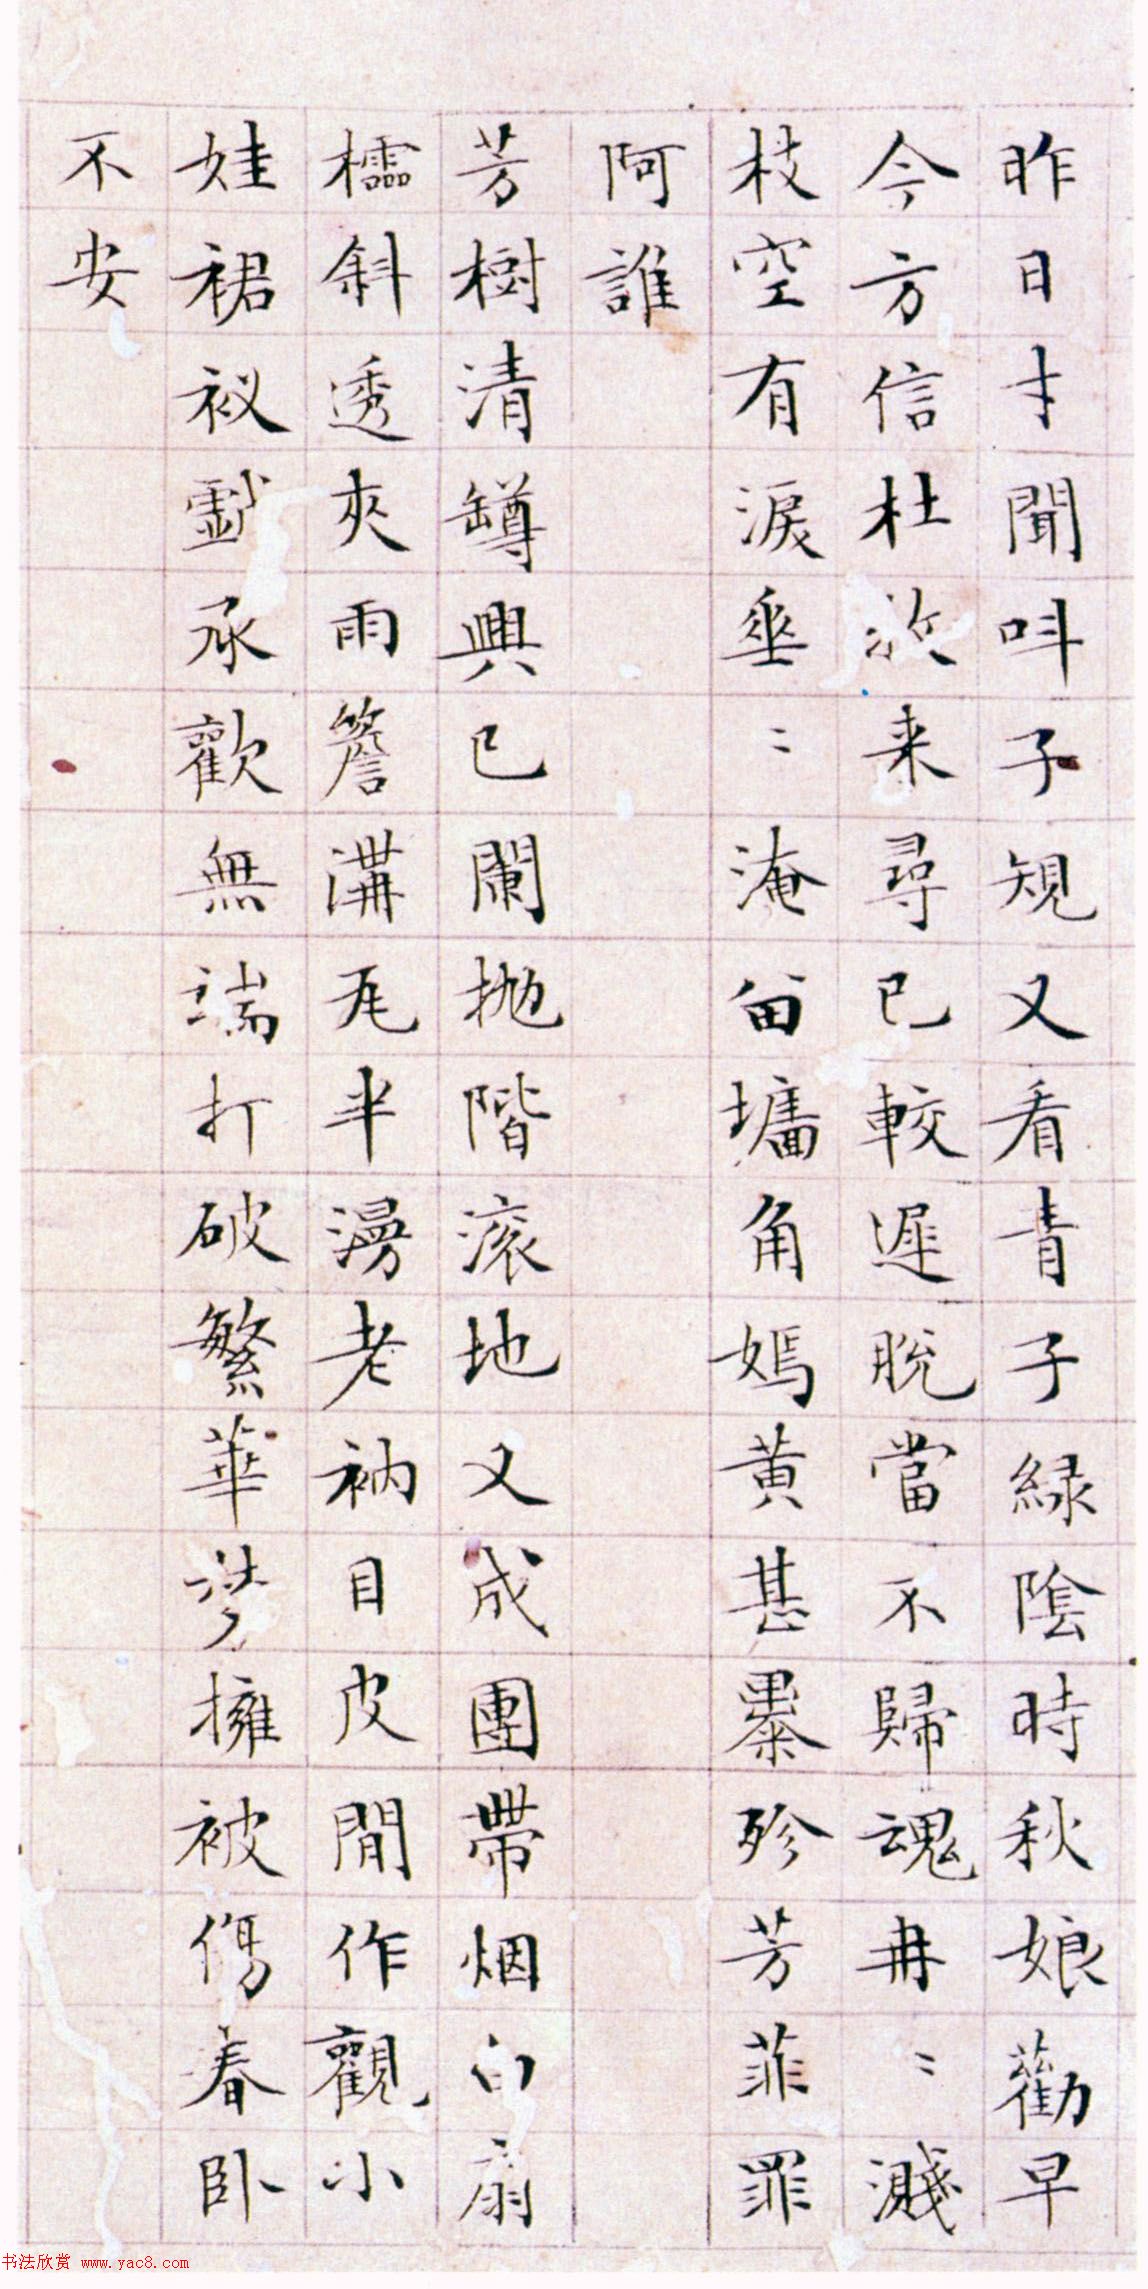 昨日才聞叫子規又看青子緑陰時秋娘勸早
今方信杜牧来尋已較遲脫當不歸魂冉〻濺
枝空有淚垂〻淹留墻角嫣黄甚暴殄芳菲罪
阿誰
芳樹清罇興已闌抛階滚地又成團帶烟扇
櫺斜透夾雨簷溝瓦半漫老衲目皮閒作觀小
娃裙衩戲承歡無端打破繁華夢擁被傷春卧
不安
书法欣赏 www.yac8.com